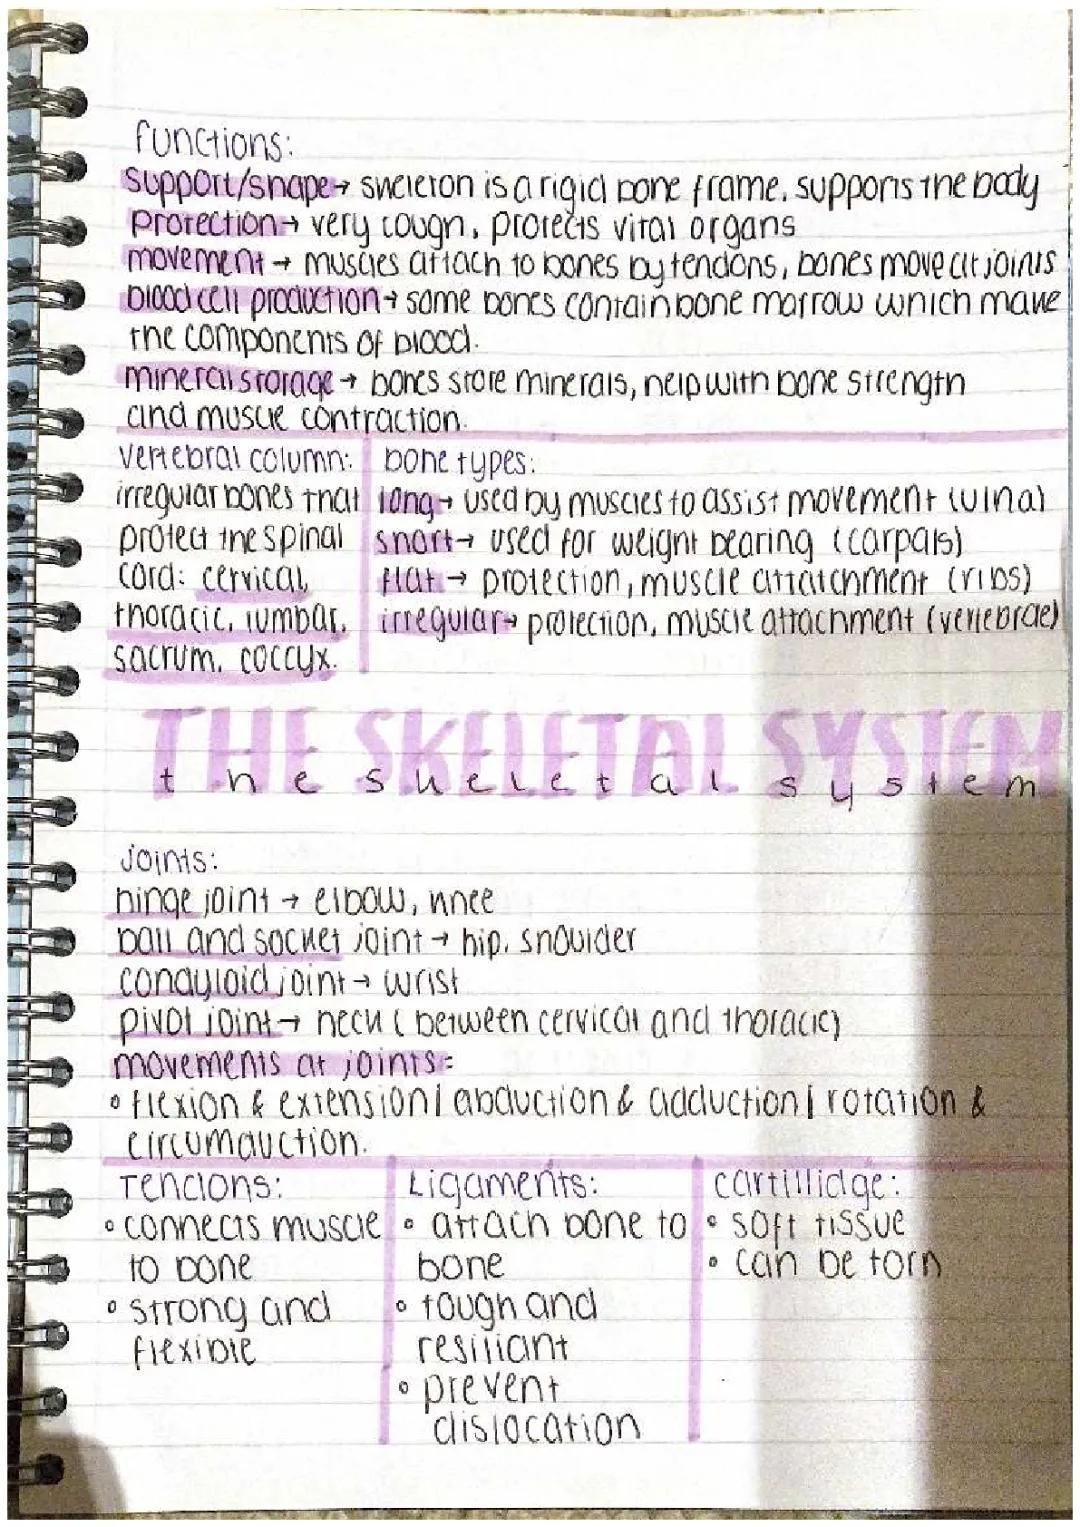 functions:
support/shape→ skeleton is a rigid bone frame, supports the body
protection→ very tough, protects vital organs
movement→ muscles attach to bones by tendons, bones move at joints
blood cell production→ some bones contain bone marrow which make
the components of blood.
mineral storage→ bones store minerals, help with bone strength
and muscle contraction.
vertebral column:
irregular bones that
protect the spinal
cord: cervical,
thoracic, lumbar,
sacrum, coccyx.
bone types:
long→ used by muscles to assist movement (ulna)
short→ used for weight bearing (carpals)
flat→ protection, muscle attatchment (ribs)
irregular→ protection, muscle attachment (vertebrae)
THE SKELETAL SYSTEM
the skeletal system
joints:
hinge joint→ elbow, knee
ball and socket joint→ hip, shoulder
condyloid joint→ wrist
pivot joint→ neck (between cervical and thoracic)
movements at joints:
• flexion & extension | abduction & adduction | rotation &
circumduction.
Tendons:
• connects muscle
to bone
• strong and
flexible
Ligaments:
• attach bone to
bone
• tough and
resiliant
• prevent
dislocation
cartillidge:
• soft tissue
• can be torn